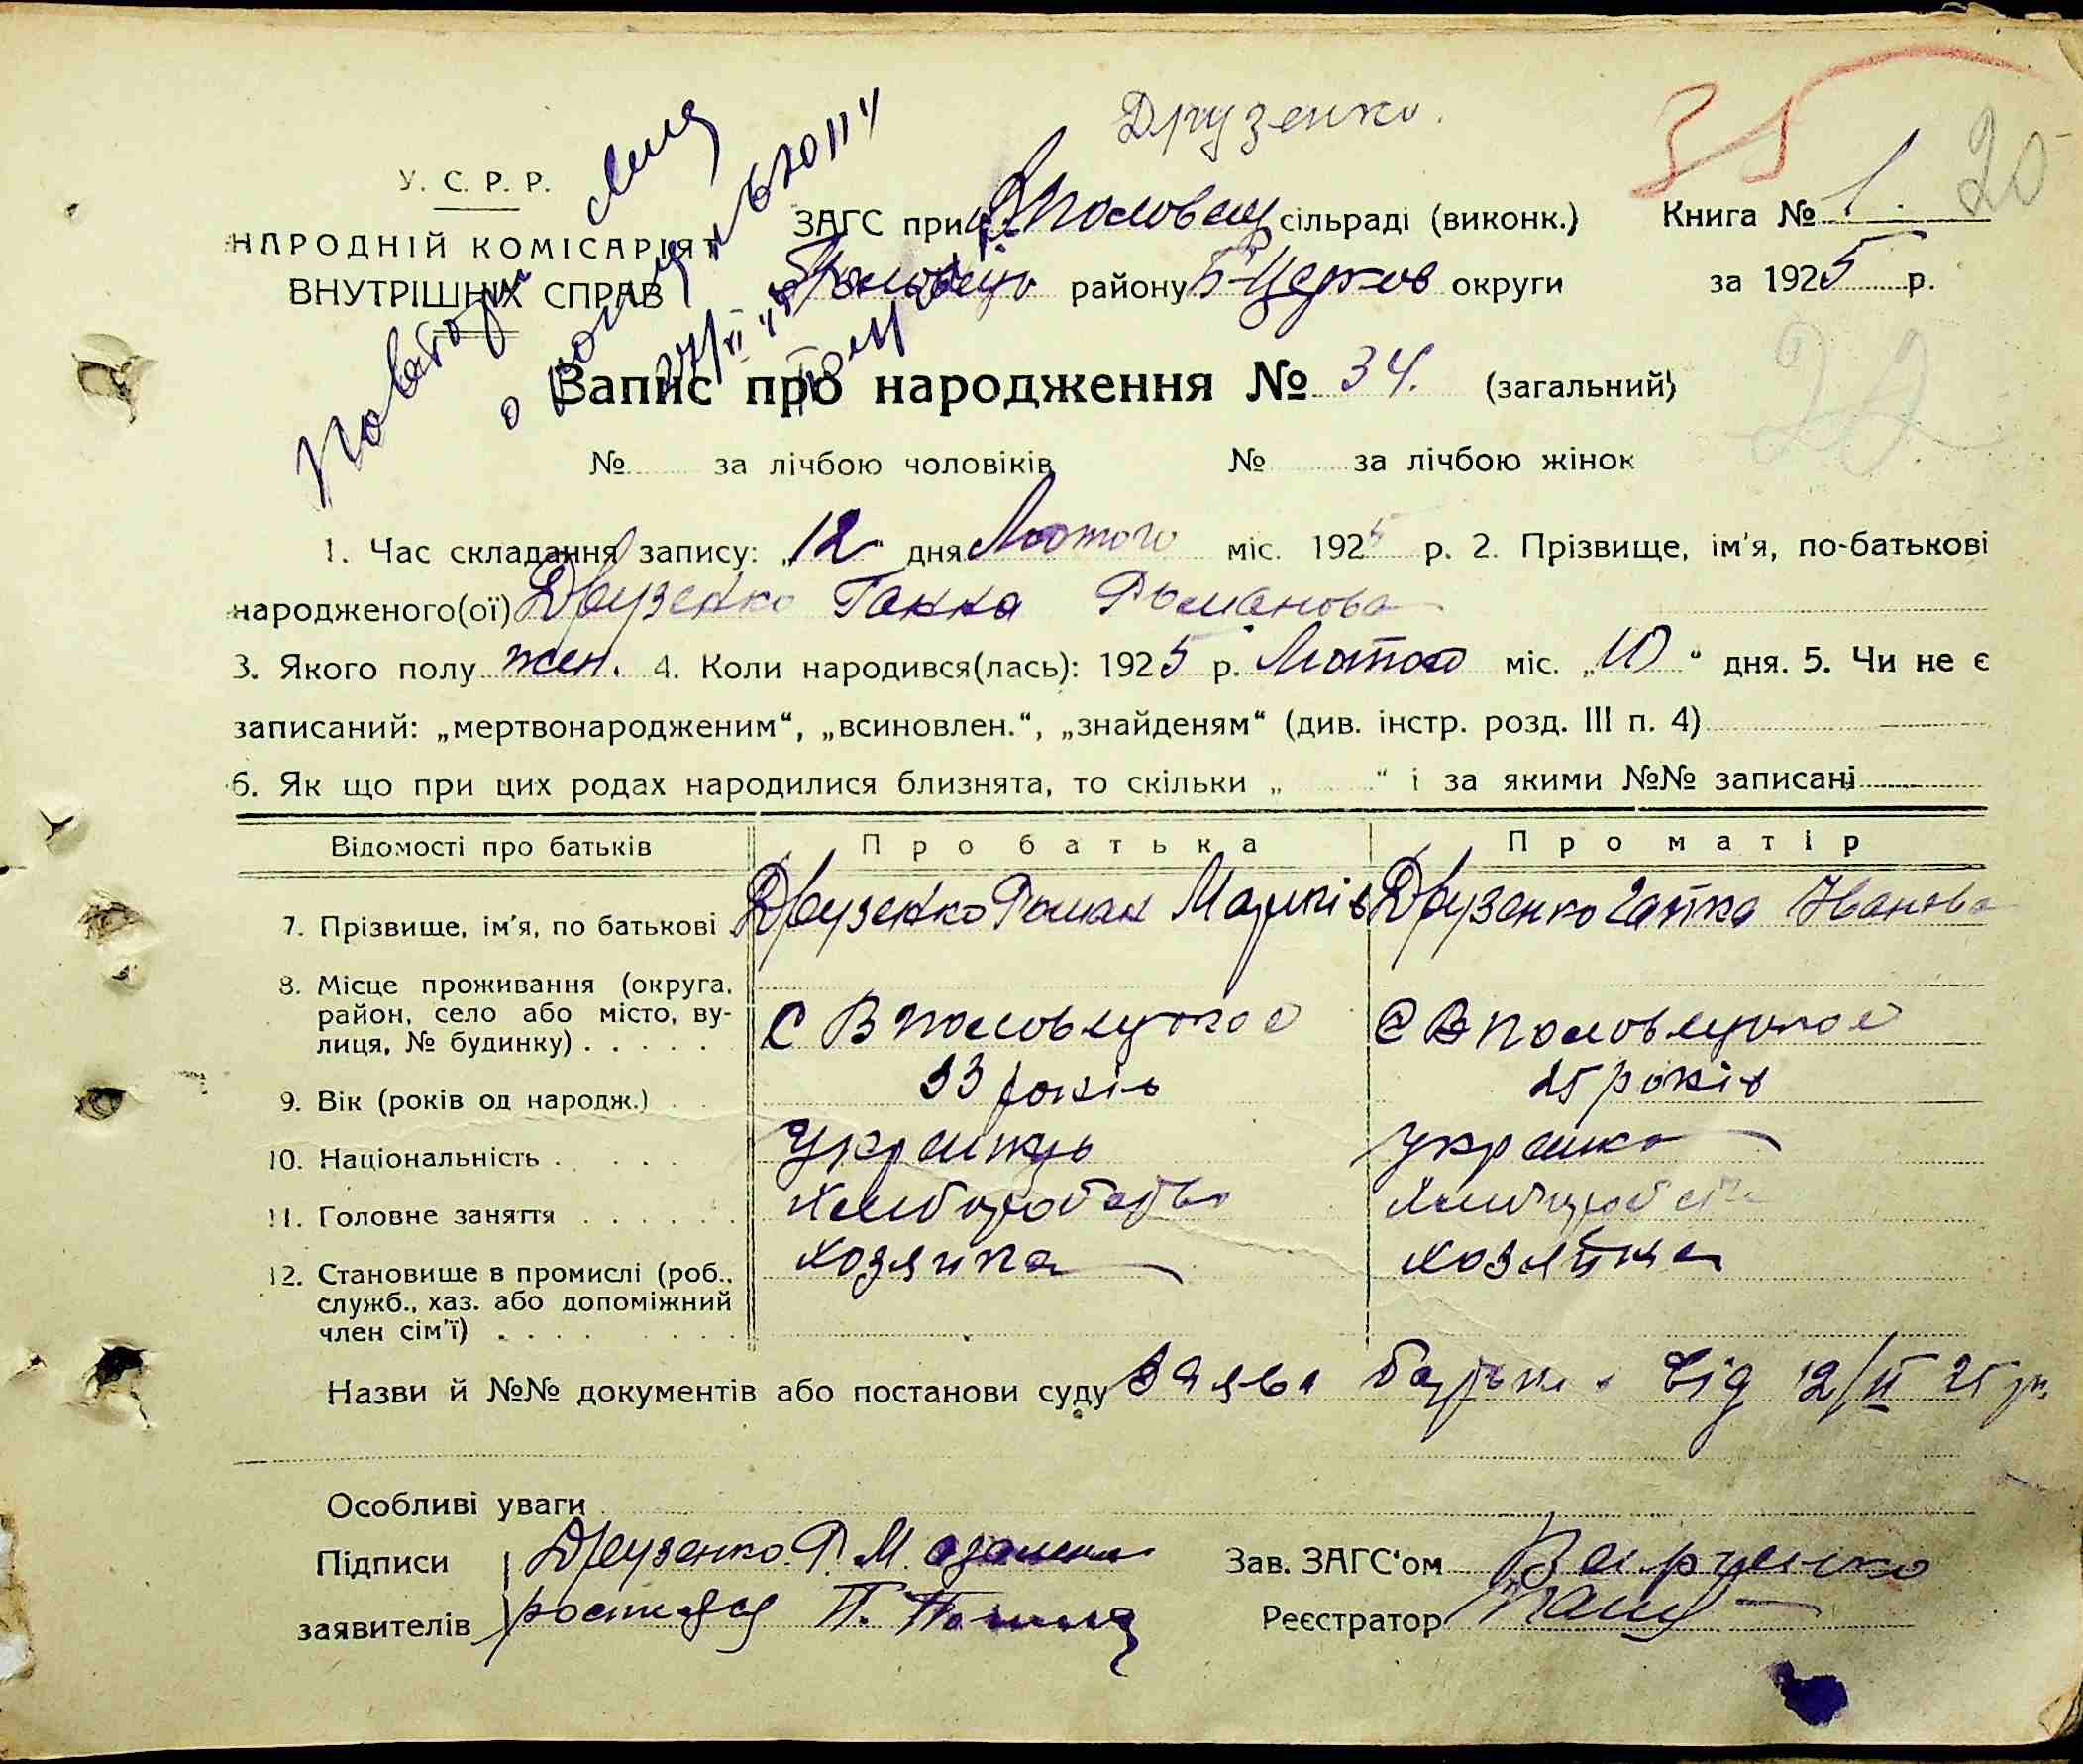 Друзенко.
35
20
У. С. Р. Р.
НАРОДНІЙ КОМІСАРІЯТ
ВНУТРІШНІХ СПРАВ
ЗАГС при В Половец сільраді (виконк.)
району Б-Церков округи
Книга № 1.
за 1925 р.
22
Запис про народження № 34. (загальний)
№ за лічбою чоловіків № за лічбою жінок
1. Час складання запису: „12“ дня Лютого міс. 1925 р. 2. Прізвище, ім'я, по-батькові
народженого(ої) Друзенко Ганна Романова
3. Якого полу жен. 4. Коли народився(лась): 1925 р. Лютого міс. „10“ дня. 5. Чи не є
записаний: „мертвонародженим“, „всиновлен.“, „знайденям“ (див. інстр. розд. III п. 4)
6. Як що при цих родах народилися близнята, то скільки „ “ і за якими №№ записані
Відомості про батьків Про батька Про матір
7. Прізвище, ім'я, по батькові Друзенко Роман Марків Друзенко Іванова
8. Місце проживання (округа,
район, село або місто, ву-
лиця, № будинку) . . . . . С В Половецкое С В Половецкое
9. Вік (років од народж.) . . 33 років 25 років
10. Національність . . . . . Українць українка
11. Головне заняття . . . . . . Хлибороб
12. Становище в промислі (роб.,
служб., хаз. або допоміжний
член сім'ї) . . . . Хозяина Хозяйка
Назви й №№ документів або постанови суду Заява батька від 12/II 25 р.
Особливі уваги
Підписи Друзенко Р. М. а за него
заявителів росписался П.
Зав. ЗАГС'ом
Реєстратор